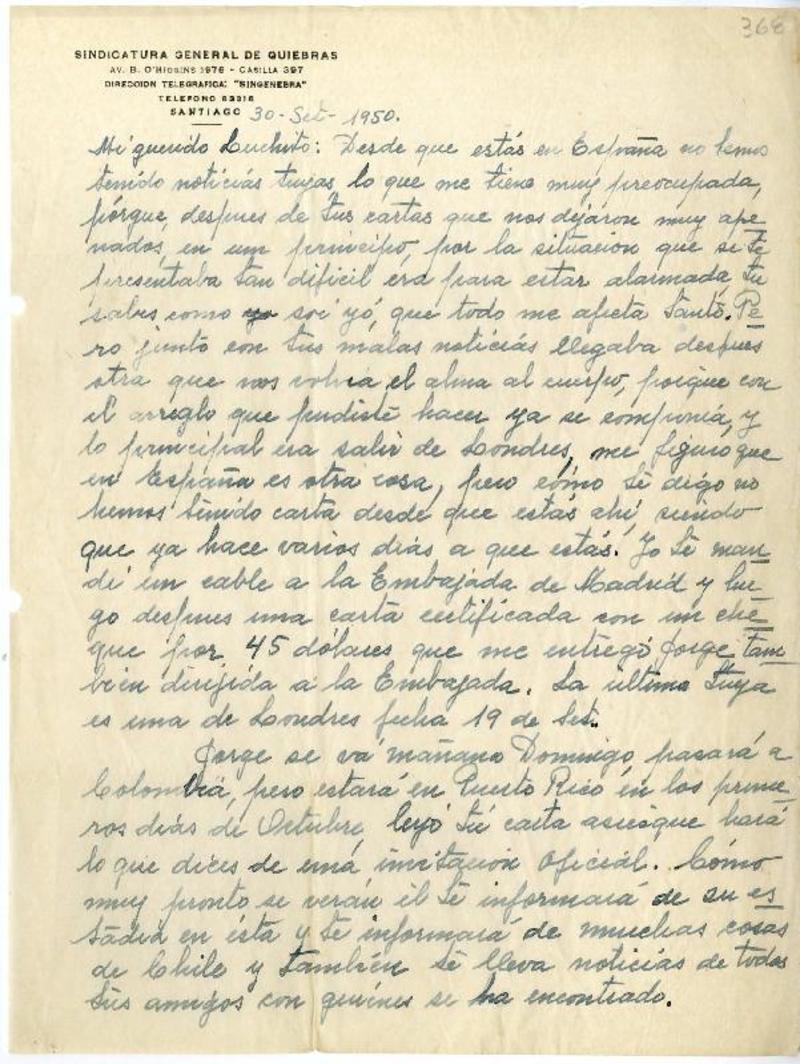 368
SINDICATURA GENERAL DE QUIEBRAS
AV. B. O'HIGGINS 1976 - CASILLA 397
DIRECCION TELEGRAFICA: "SINGENEBRA"
TELEFONO 83316
SANTIAGO 30-Set-1950.
Mi querido Luchito: Desde que estás en España no hemos
tenido noticiás tuyas, lo que me tiene muy preocupada,
pórque, despues de tus cartas que nos dejáron muy ape
nados, en un principio, por la situación que se te
presentaba tan dificil era para estar alarmada, tu
sabes como yo soi yó, que todo me afecta tanto. Pe
ro junto con tus malas noticiás llegaba despues
otra que nos volvia el alma al cuerpo, porque con
el arreglo que pudiste hacer ya se componiá, y
lo principal era salir de Londres, me figuro que
en España es otra cosa, pero cómo té digo no
hemos tenido carta desde que estás ahí, siendo
que ya hace varios diás a que estás. Yo té man
dé un cable a la Embajáda de Madrid y lue
go despues una carta certificada con un che
que por 45 dólares que me entregó Jorge tam
bien dirijida a la Embajada. La ultima tuya
es una de Londres fecha 19 de Set..
Jorge se vá mañana Domingo, pasará a
Colombiá, pero estará en Puerto Rico en los prime
ros diás de Octubre, leyó tú carta asiesque hará
lo que dices de una invitación Oficial. Cómo
muy pronto se verán él té informará de su es
tadia en ésta y te informará de muchas cosas
de Chile y también te lleva noticias de todos
tús amigos con quiénes se ha encontrado.